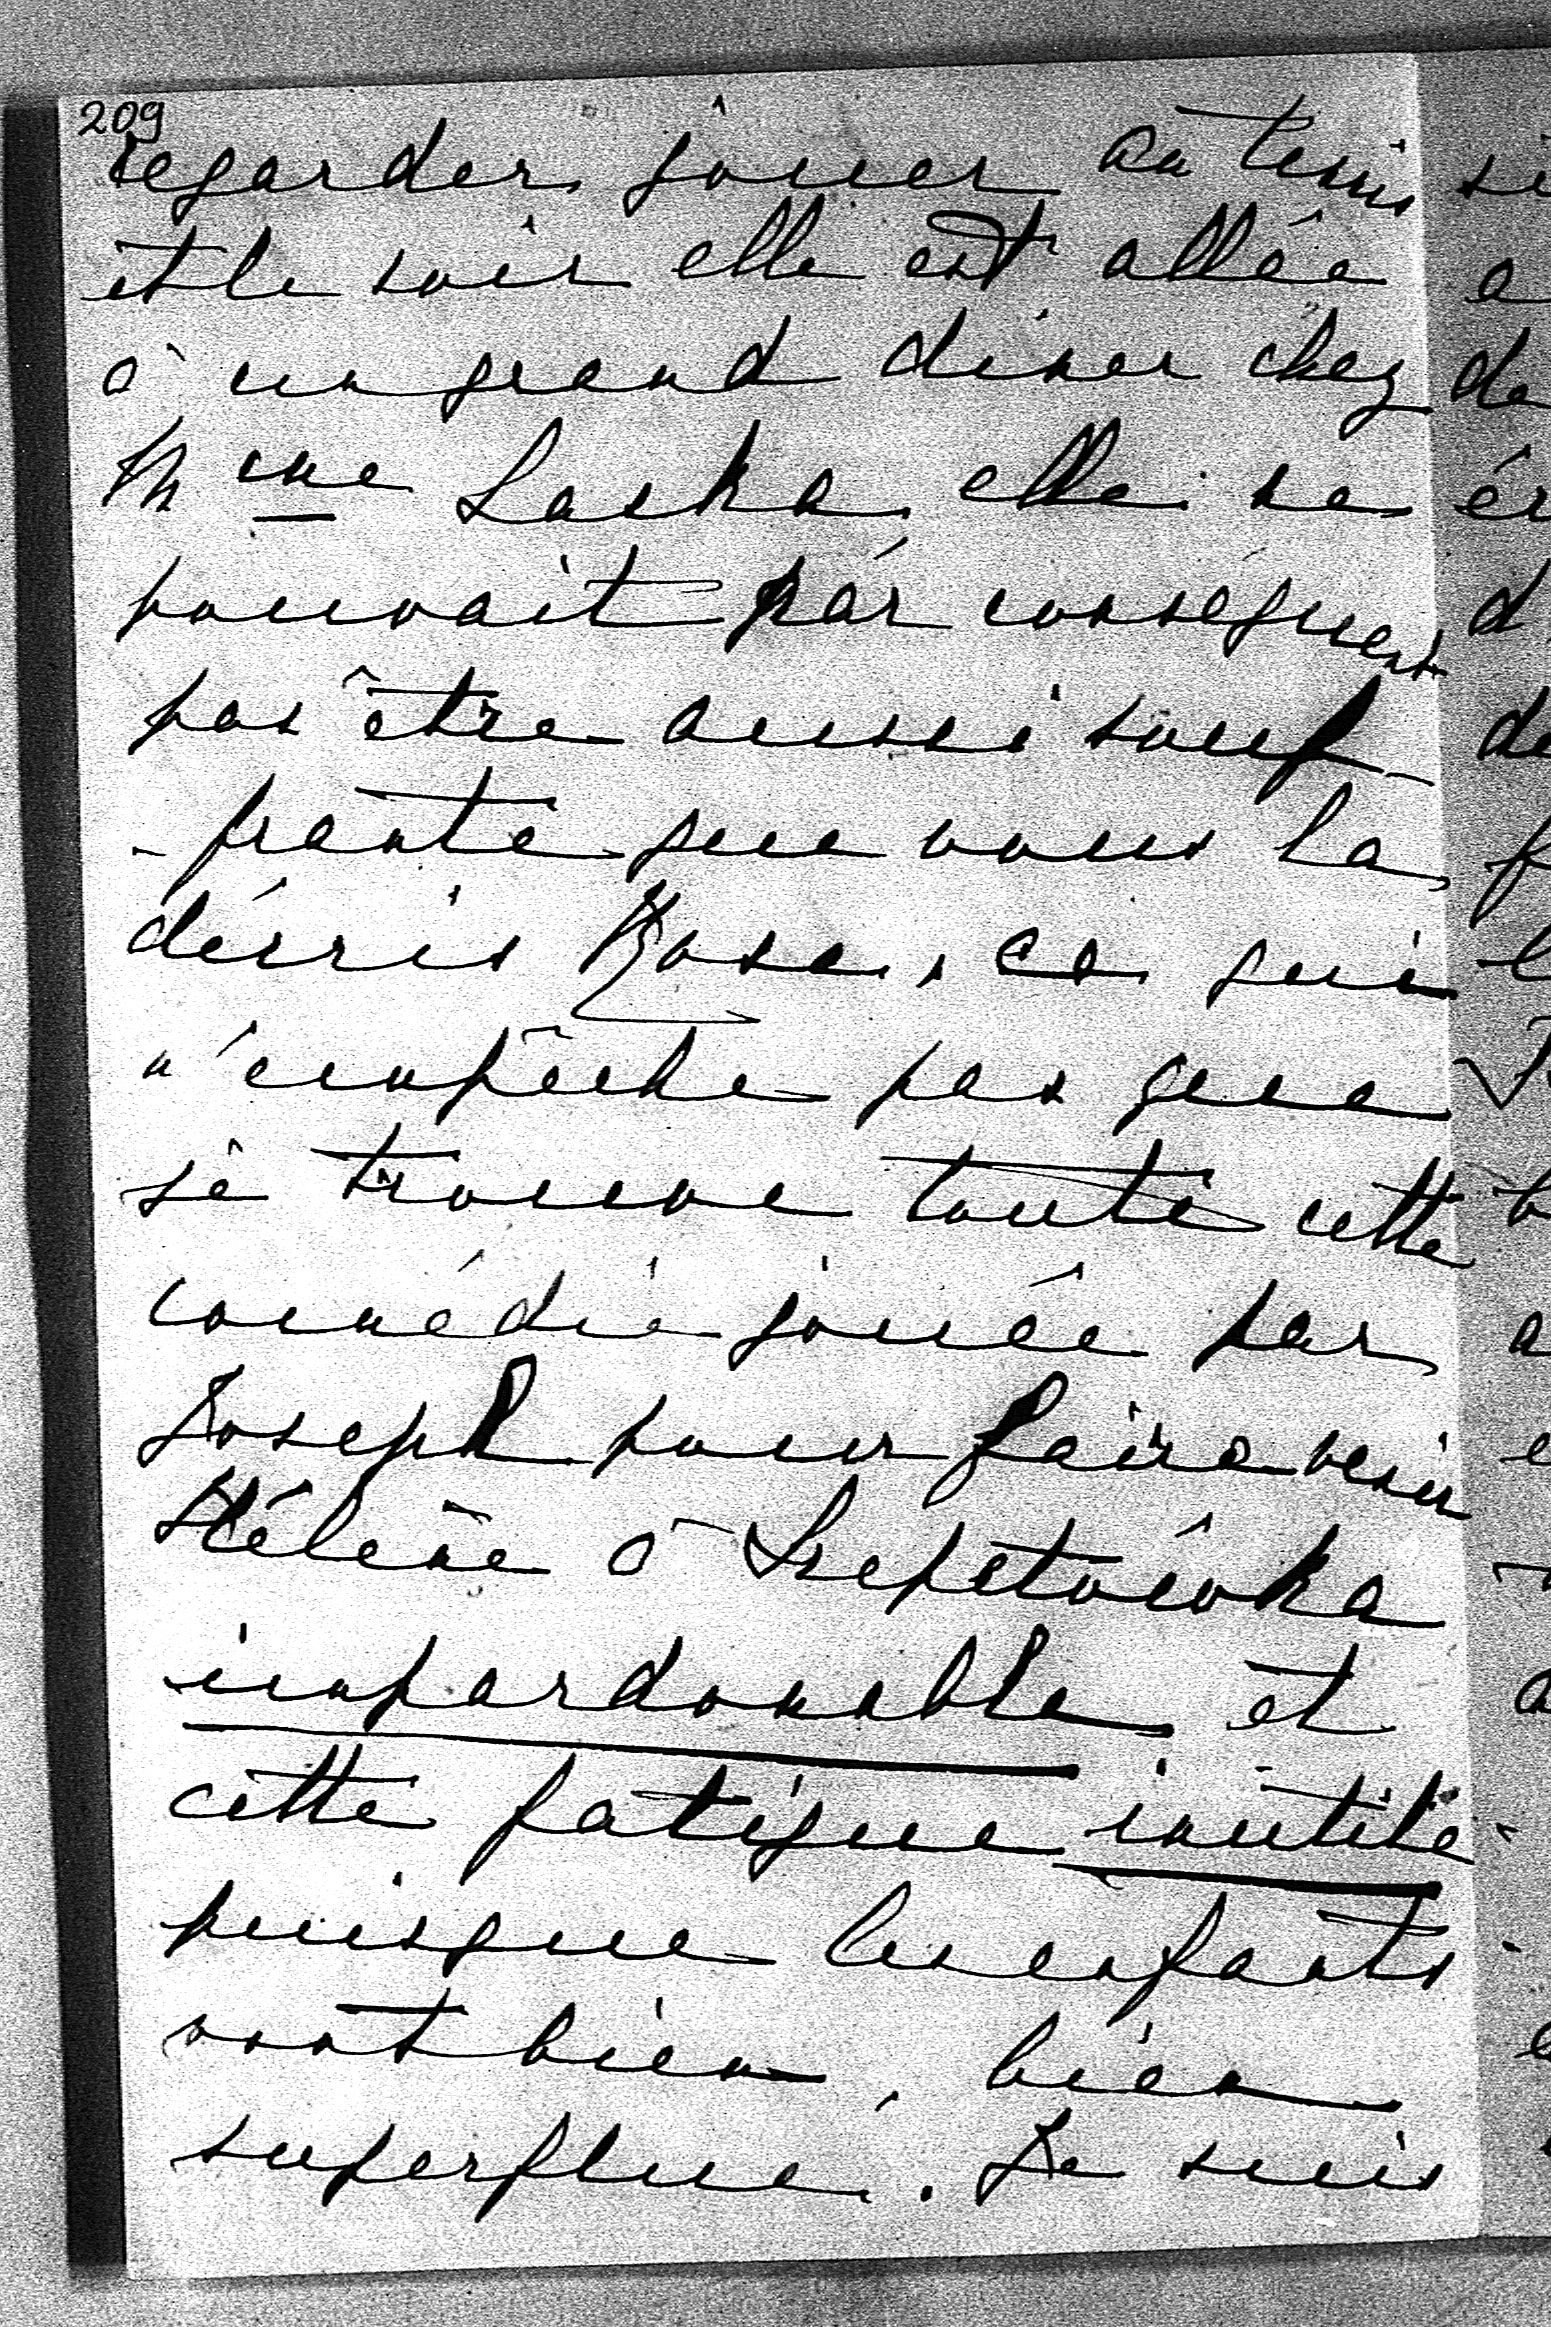 209
regarder jouer au tenis
et le soir elle est allée
à un grand diner chez
Mme Laska, elle ne
pouvait par conséquent
pas être aussi souf-
-frante que vous la
décris Rose, ce qui
n'empêche pas que
je trouve toute cette
comédie jouée par
Joseph pour faire venir
Hélène à Szepetowka
impardonable et
cette fatigue inutile
puisque les enfants
vont bien, bien
superflue. Je suis